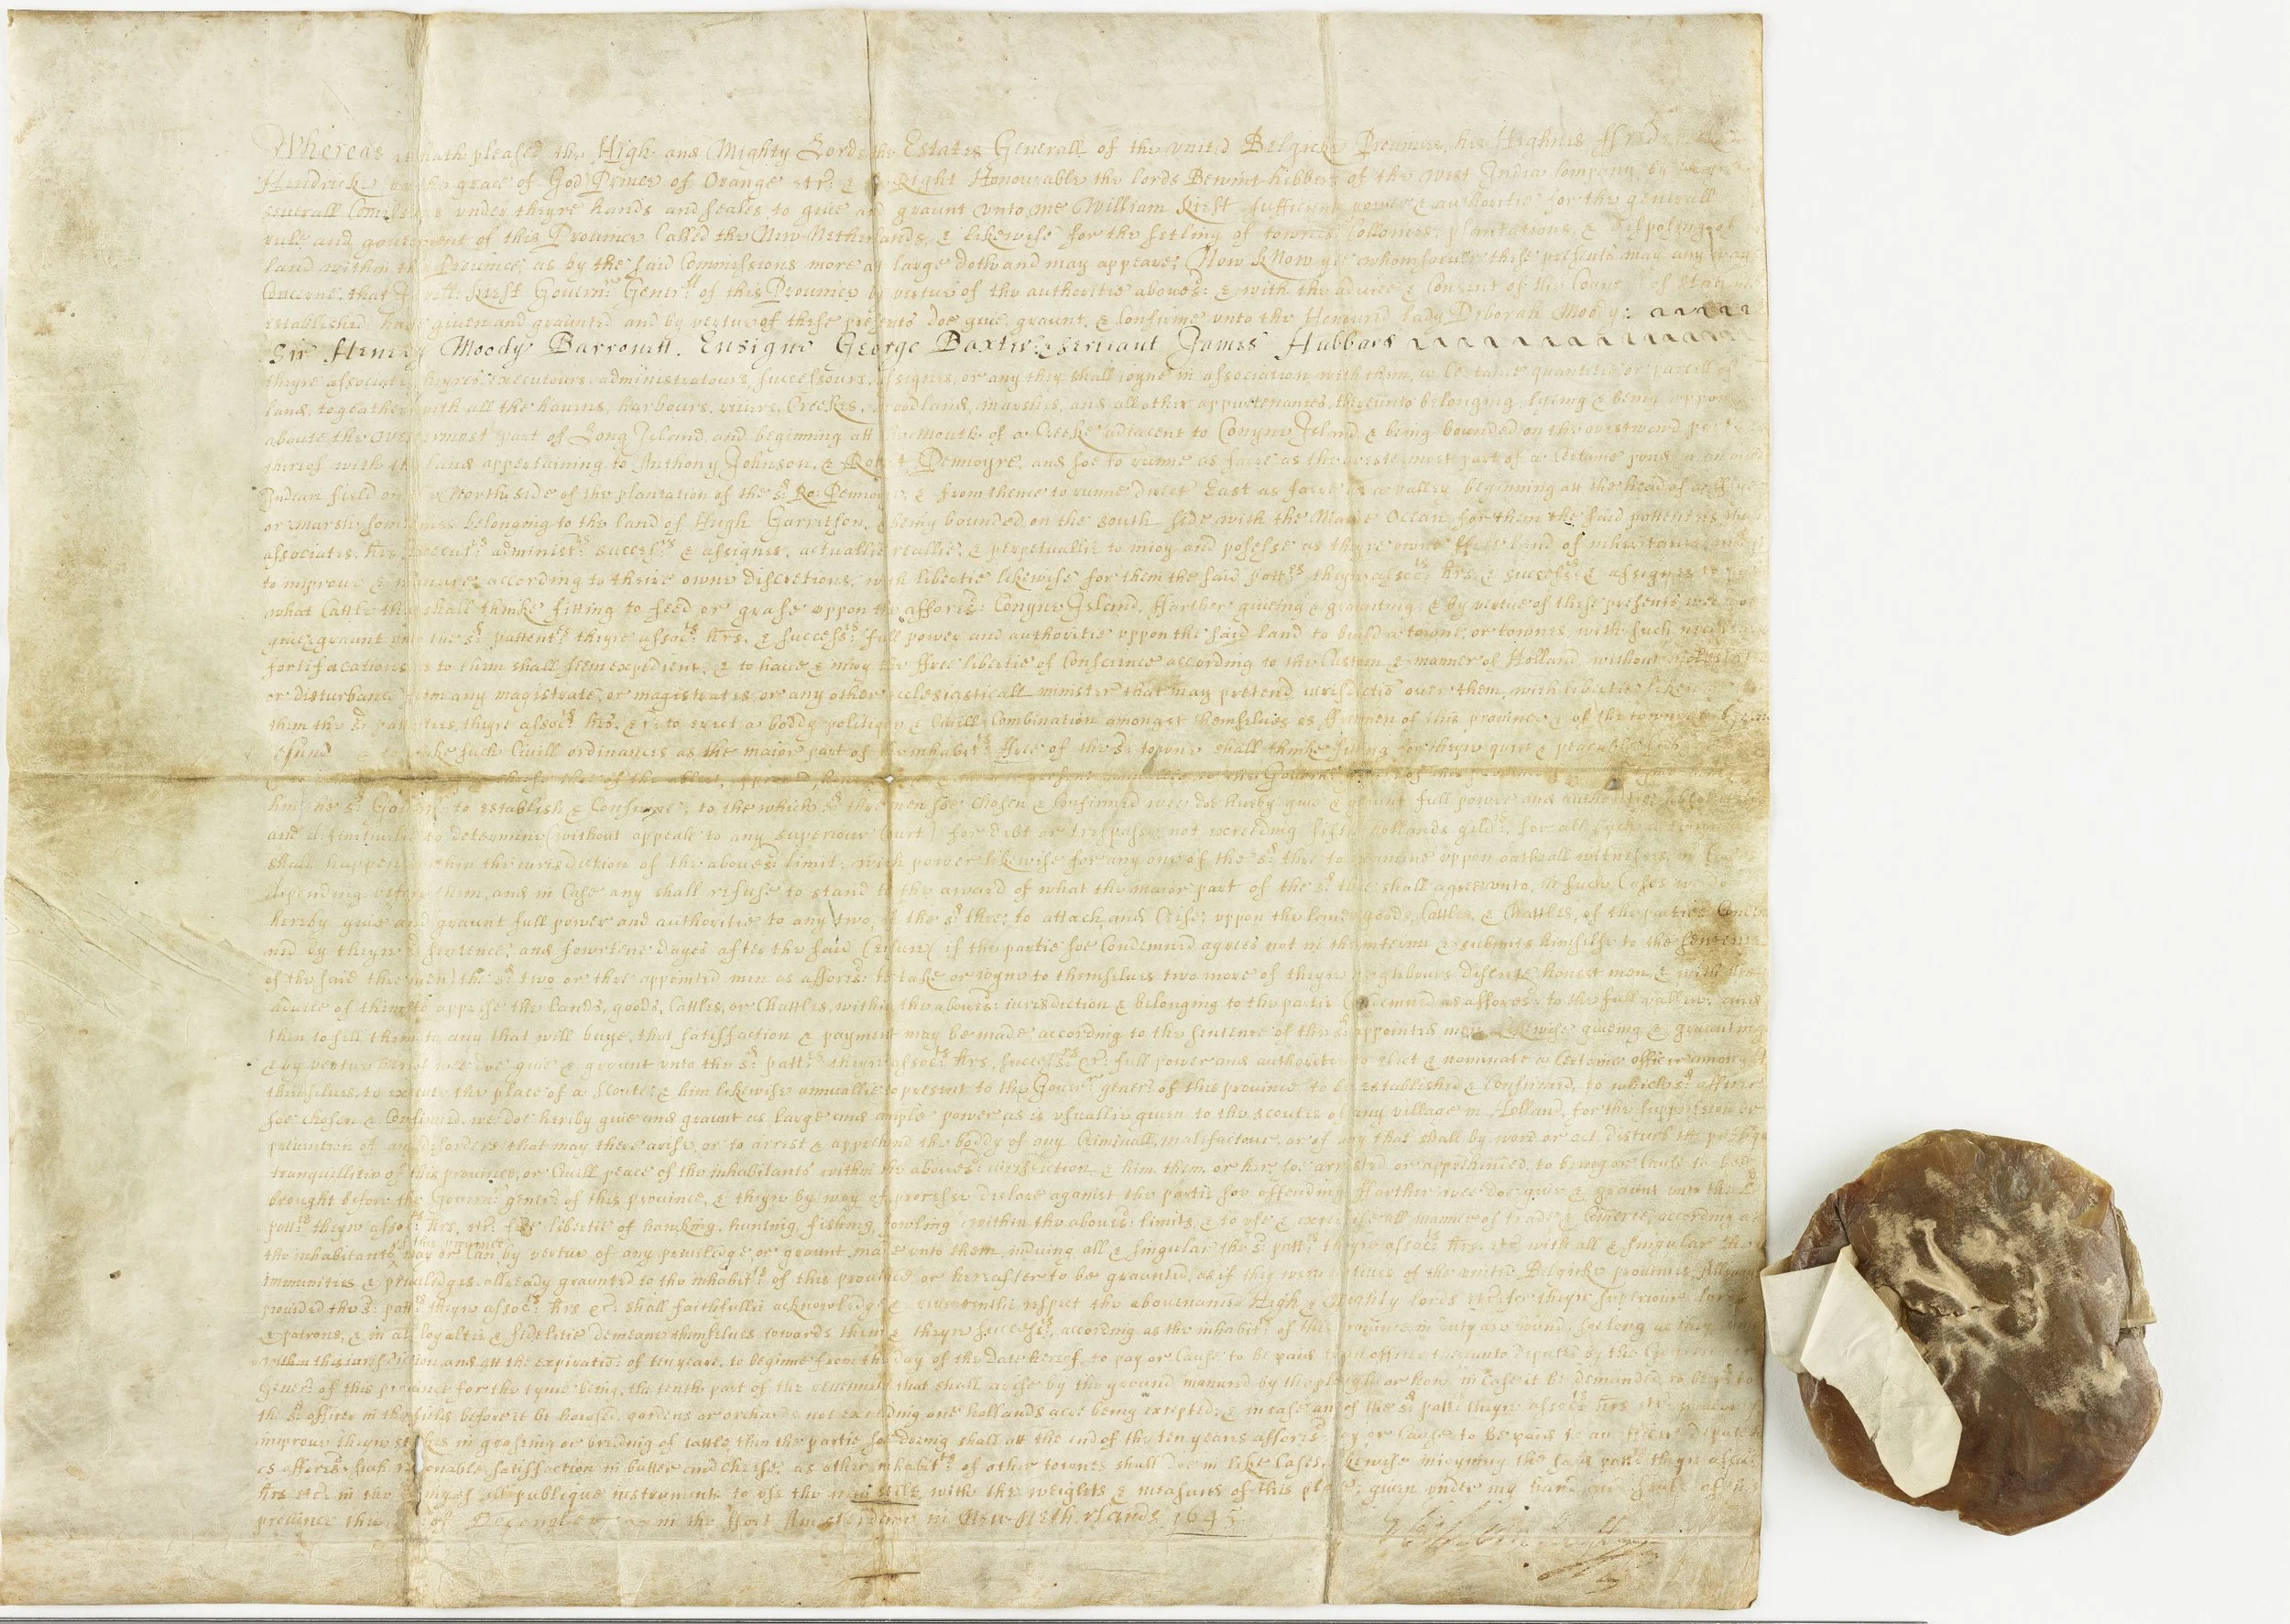 Whereas it hath pleased the High and Mighty Lords the Estates Generall of the united Belgicke Provinces, his Highnes ffredricke
Hendricke by the grace of God Prince of Orange etr: & the Right Honourable the lords Bewint-hibbers of the West India Company, by
severall Comissions under theyre hands and seales, to give and graunt unto me William Kieft sufficient power & authoritie for the generall
rule and government of this Province Called the New-Netherlands, & likewise for the setling of townes, Collonies, plantations, & disposinge of
land within this Province, as by the said Commissions more att large doth and may appeare; Now Know yee whomsoever these presents may any wayes
Concerne, that I Will: Kieft Govern:r Gener:ll of this Province by vertue of the authoritie aboves:d & with the advice & Consent of the Councell of State
established, have given and graunted and by vertue of these presents doe give, graunt, & Confirme unto the Honoured lady Deborah Moody:
Sir Henry Moody Barronett. Ensigne George Baxter: & serieant James Hubbard
theyre associates, heyres, executours, administratours, successours, assignes, or any they shall ioyne in association with them, a Certaine quantitie or parcell of
land, togeather with all the havens, harbours, rivers, Creekes, woodland, marshes, and all other appurtenances thereunto belonging, lyeing & being uppon
aboute the westermost part of Long Island, and beginning att the mouth of a Creeke adiacent to Conyne Island & being bounded on the westward part
thereof with the land appertaining to Anthony Johnson, & Robert Pennoyre, and soe to runne as farre as the westermost part of a Certaine pond in an ould
Indian field on the North side of the plantation of the s:d Ro: Pennoyre, & from thence to runne direct East as farre as a valley beginning att the head of a fflye
or marshe somtimes belonging to the land of Hugh Garritson, & being bounded on the south side with the Maine Ocean, for them the said pattentees, theyre
associates, hrs, execut:rs administ:rs success:rs & assignes, actuallie, reallie, & perpetuallie to inioy and possesse as theyre owne free land of inheritance and
to improve & manure according to their owne discretions, with libertie likewise for them the said patt:es theyre assoc:ts hrs, & success:rs & assignes to put
what Cattle they shall thinke fitting to feed or grase uppon the afores:d Conyne Island, ffarther giveing & graunting & by vertue of these presents wee doe
give & graunt unto the s:d pattent:es theyre assoc:ts hrs. & success:rs full power and authoritie uppon the said land to build a towne or townes with such necessarie
fortifacations as to them shall seem expedient, & to have & inioy the ffree libertie of Conscience according to the Custom & manner of Holland, without molestation
or disturbance from any magistrate or magistrates or any other ecclesiasticall minister that may pretend iurisdictiō over them, with libertie likewise for
them the s:d pattentees, theyre assoc:ts hrs. &r: to erect a boddy politique & Civill Combination amongst themselves as ffreemen of this province & of the towne of
& to make such Civill ordinances as the maior part of the inhabit:ts ffree of the s:d towne shall thinke fitting for theyre quiet & peaceable
the of the ablest, approved, & to the Govern:r of this province
him the s:d Govern:r to establish & Confirme, to the which s:d three men soe Chosen & Confirmed wee doe hereby give & graunt full power and authoritie absolutelie
and definitivelie to determine (without appeale to any superiour Court) for debt or trespasse not exceeding fiftie hollands gild:rs, for all such actions
shall happen within the iurisdiction of the aboves:d limit, with power likewise for any one of the s:d three to examine uppon oath all witnesses in
depending before them, and in Case any shall refuse to stand to the award of what the maior part of the s:d three shall agree unto, in such Cases we doe
hereby give and graunt full power and authoritie to any two of the s:d three; to attach and Ceise; uppon the land, goods, Cattles, & Chattles, of the parties Condem
ned by theyre s:d sentence; and fowrtene dayes after the said Ceisure (if the partie soe Condemned agrees not in the interim & submits himselfe to the sentence
of the said three men) the s:d two or three appointed men as afores:d to take or ioyne to themselves two more of theyre neighbours discrete honest men, & with the
advice of them to apprise the Lands, goods, Cattles, or Chattles, within the aboves:d iurisdiction & belonging to the partie Condemned as afores:d to the full vallew; and
then to sell them to any that will buye, that satisfaction & payment may be made according to the sentence of the s:d appointed men. Likewise giveing & graunting
& by vertue hereof wee doe give & graunt unto the s:d patt:es theyre assoc:ts hrs, success:rs &r: full power and authoritie to elect & nominate a Certaine officer amongst
themselves, to execute the place of a Scoute; & him likewise annuallie to present to the Gover:r gener:ll of this province to be established & Confirmed, to which s:d officer
soe chosen & Confirmed, we doe hereby give and graunt as large and ample power as is usuallie given to the scoutes of any village in Holland, for the suppression or
prevention of any disorders that may there arise, or to arrest & apprehend the boddy of any Criminall, malefactour, or of any that shall by word or act disturb the publique
tranquillitie of this province, or Civill peace of the inhabitants within the aboves:d iurisdiction, & him, them, or her, soe arrested or apprehended, to bring or Cause to bee
brought before the Govern:r gener:ll of this province, & theyre by way of processe declare against the partie soe offending. ffarther wee doe give & graunt unto the s:d
patt:es theyre assoc:ts hrs, etr: free libertie of hawking, hunting, fishing, fowling within the aboves:d limits, & to use & exercise all manner of trade & Comerce, according as
of this province
the inhabitants may or Can by vertue of any priviledge or graunt made unto them, induing all & singular the s:d patt:es theyre assoc:ts hrs. etr: with all & singular the
immunities & priviledges allready graunted to the inhabit:ts of this province or hereafter to be graunted, as if they were natives of the united Belgicke provinces, Allwayes
provided the s:d patt:es theyre assoc:ts hrs &r: shall faithfullie acknowledge & reverentlie respect the abovenamed High & Mighty lords etr: for theyre superiour lords
& patrons, & in all loyaltie & fidelitie demeane themselves towards them & theyre success:rs, according as the inhabit:ts of this province in duty are bound, soe long as they
within this iurisdiction, and att the expiratiō of ten yeare, to beginne from the day of the date hereof, to pay or Cause to be paid to an officer thereunto deputed by the Governour
Gener:ll of this province for the tyme being, the tenth part of the revenews that shall arise by the ground manured by the plough or how, in Case it be demanded to bee p:d to
the s:d officer in the fields before it be howsed, gardens or orchards not exceeding one hollands acre being excepted; & in case any of the s:d patt:es theyre assoc:ts hrs etr:
improve theyre stockes in grasing or breding of Cattle, then the partie soe doeing shall att the end of the ten years afores:d pay or Cause to be paid to an officer deputed
as afores:d such reasonable satisfaction in butter and cheese, as other inhabit:ts of other townes shall doe in like Cases, Likewise inioyning the said patt:es theyre assoc:ts
hrs etr: in the of all publique instruments to use the new stile with the weights & measures of this place: given under my hand and seale of this
province this of December in the ffort Amsterdam in New Netherlands 1645